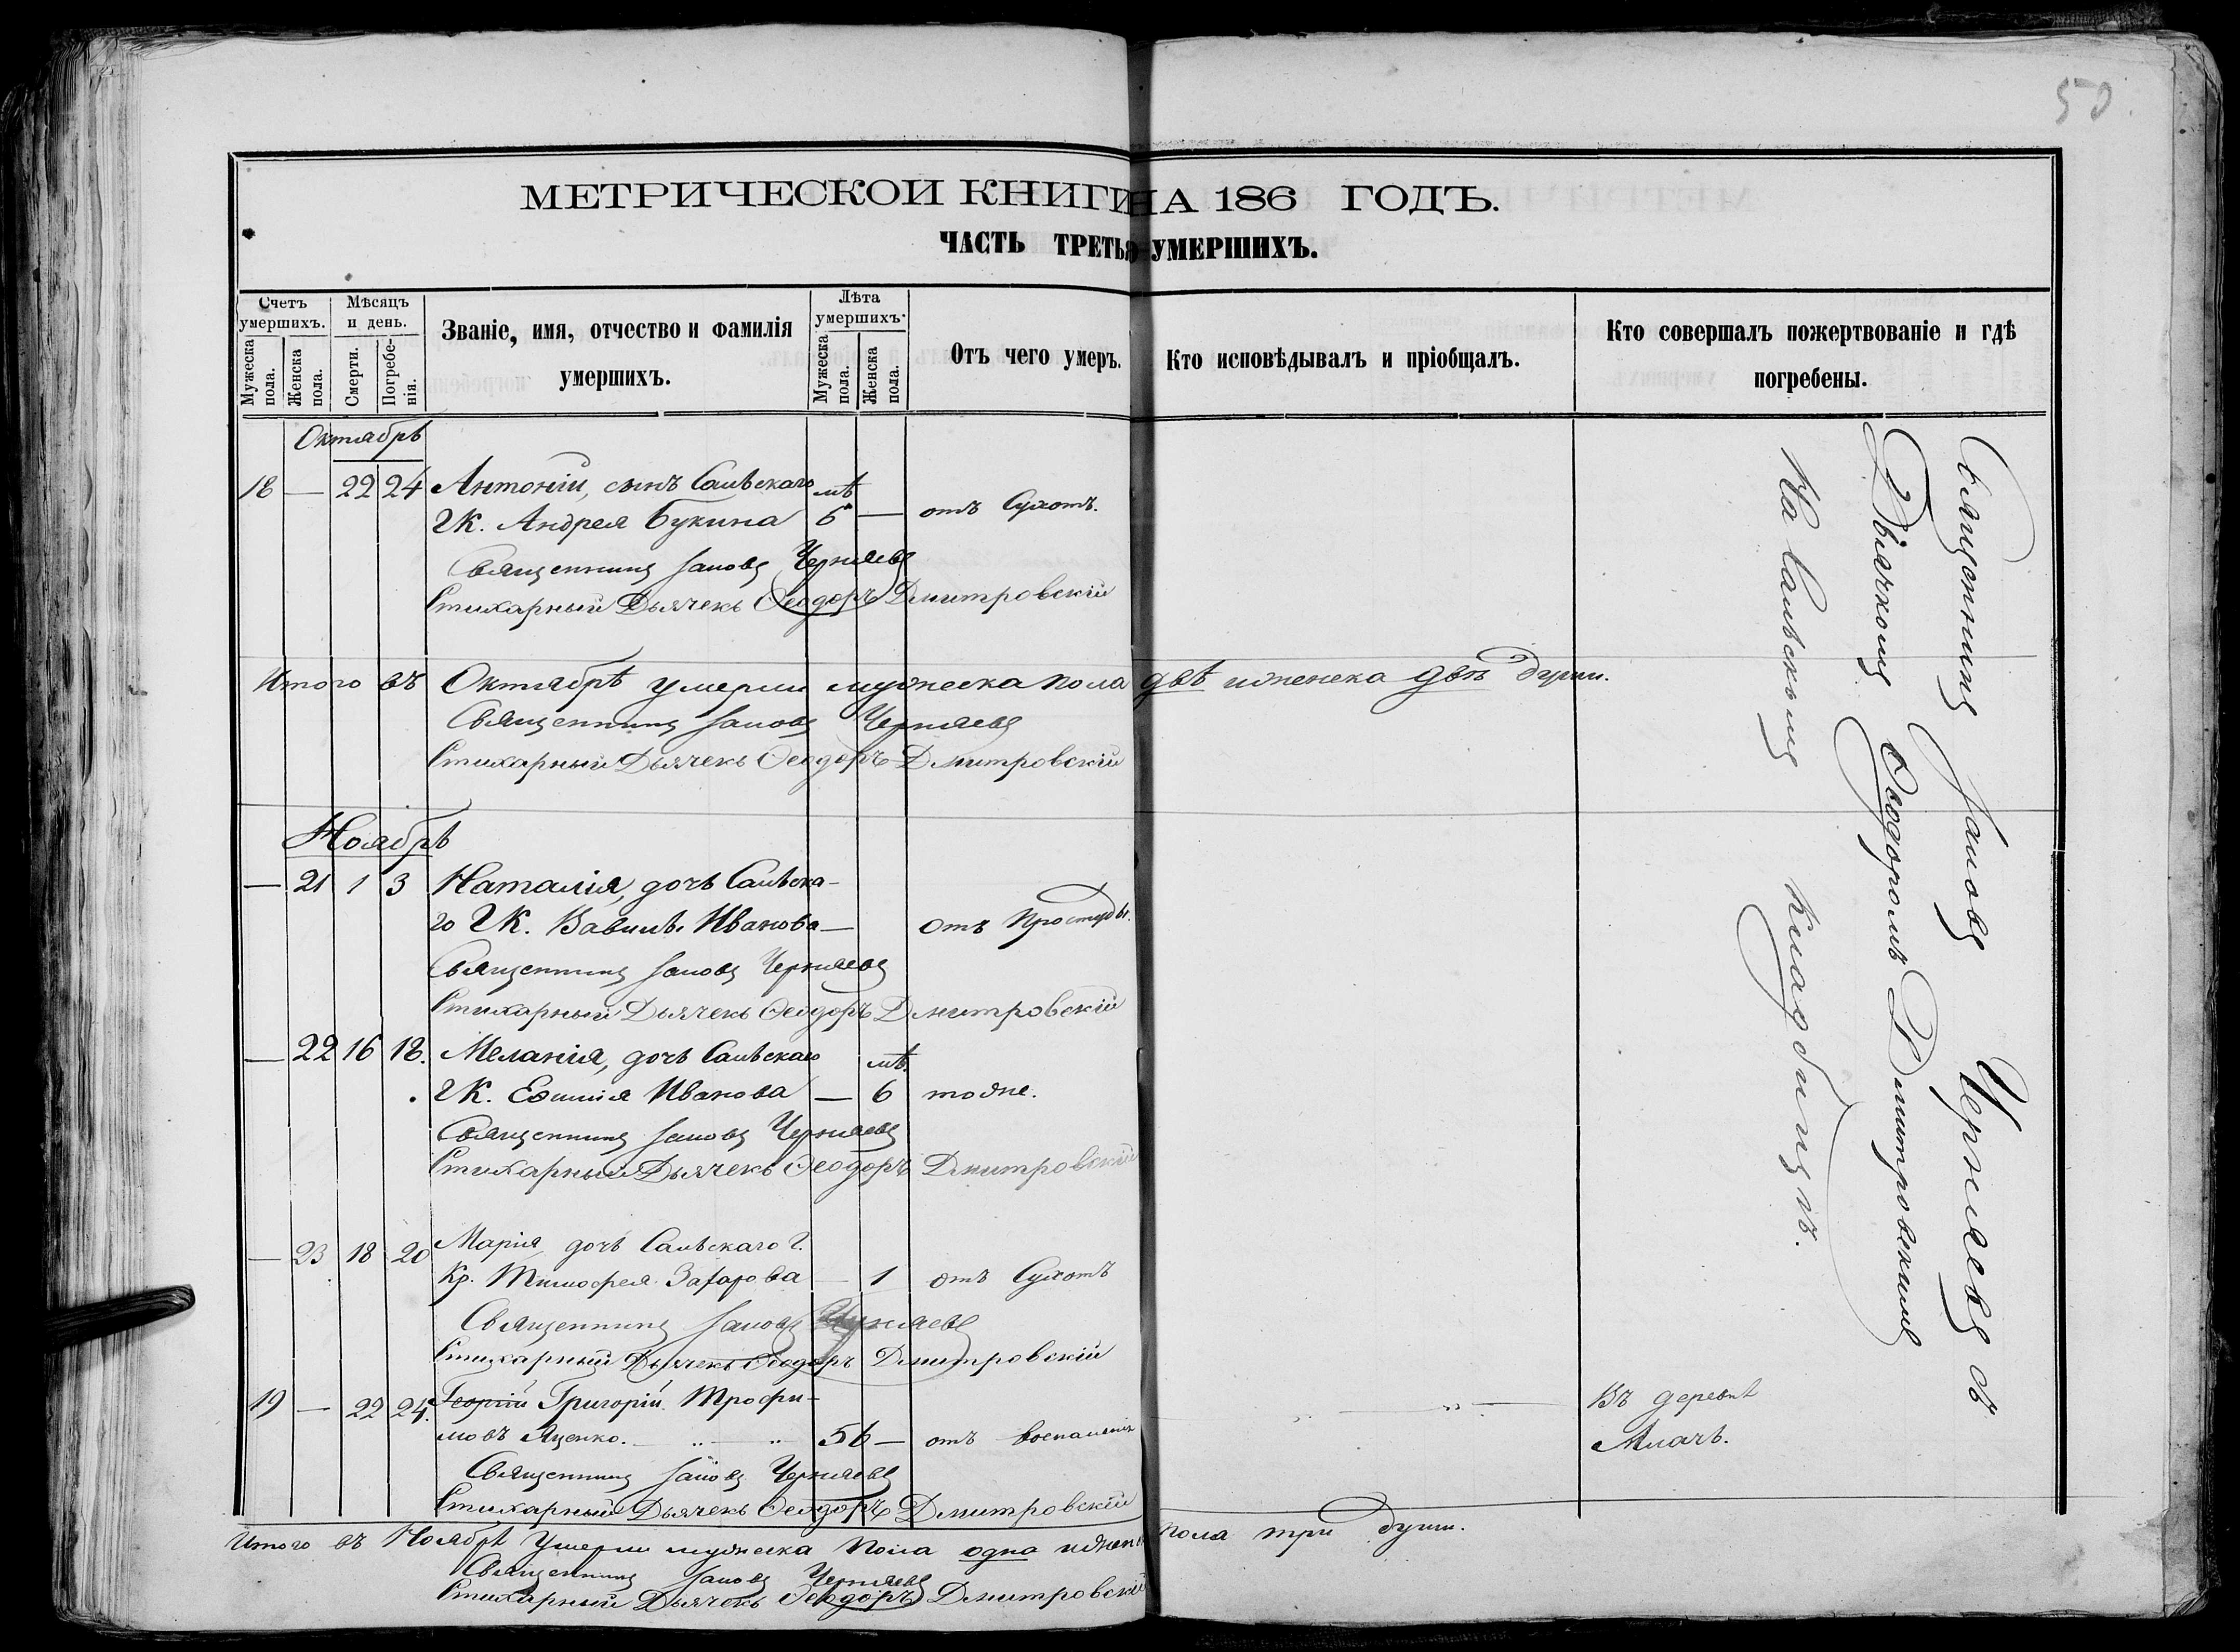 50.
МЕТРИЧЕСКОЙ КНИГИ НА 186 ГОДЪ.
ЧАСТЬ ТРЕТЬЯ УМЕРШИХЪ.
Счетъ умершихъ.
Мужеска пола.
Женска пола.
Мѣсяцъ и день.
Смерти.
Погребенія.
Званіе, имя, отчество и фамилія умершихъ.
Лѣта умершихъ.
Мужеска пола.
Женска пола.
Отъ чего умеръ.
Кто исповѣдывалъ и пріобщалъ.
Кто совершалъ пожертвованіе и гдѣ погребены.
Октябрь
18 — 22 24 Антоній, сынъ
Г.К. Андрея Букина 6 — отъ Сухотъ.
Священникъ Іаковъ Черняевъ
Стихарный Дьячекъ Ѳеодоръ Дмитровскій
Итого въ Октябрѣ умерли мужеска пола двѣ и женска двѣ души.
Священникъ Іаковъ Черняевъ
Стихарный Дьячекъ Ѳеодоръ Дмитровскій
Ноябрь
— 21 1 3 Наталія, дочь
го Г.К. Вавилы Иванова — отъ Простуды.
Священникъ Іаковъ Черняевъ
Стихарный Дьячекъ Ѳеодоръ Дмитровскій
— 22 16 18. Меланія, дочь
Г.К. Иванова — 6 тоже.
Священникъ Іаковъ Черняевъ
Стихарный Дьячекъ Ѳеодоръ Дмитровскій
— 23 18 20 Марія дочь Г.
Кр. Тимофея Захарова — 1 отъ Сухотъ
Священникъ Іаковъ Черняевъ
Стихарный Дьячекъ Ѳеодоръ Дмитровскій
19 — 22 24. Георгій Григорій Трофи-
мовъ Яценко. 56 — отъ воспаленія
Въ деревнѣ
Священникъ Іаковъ Черняевъ
Стихарный Дьячекъ Ѳеодоръ Дмитровскій
Итого въ Ноябрѣ Умерли мужеска Пола одна и женск пола три души.
Священникъ Іаковъ Черняевъ
Стихарный Дьячекъ Ѳеодоръ Дмитровскій
Священникъ Іаковъ Черняевъ съ
Дьячкомъ Ѳеодоромъ Дмитровскимъ
На Кладбищѣ.